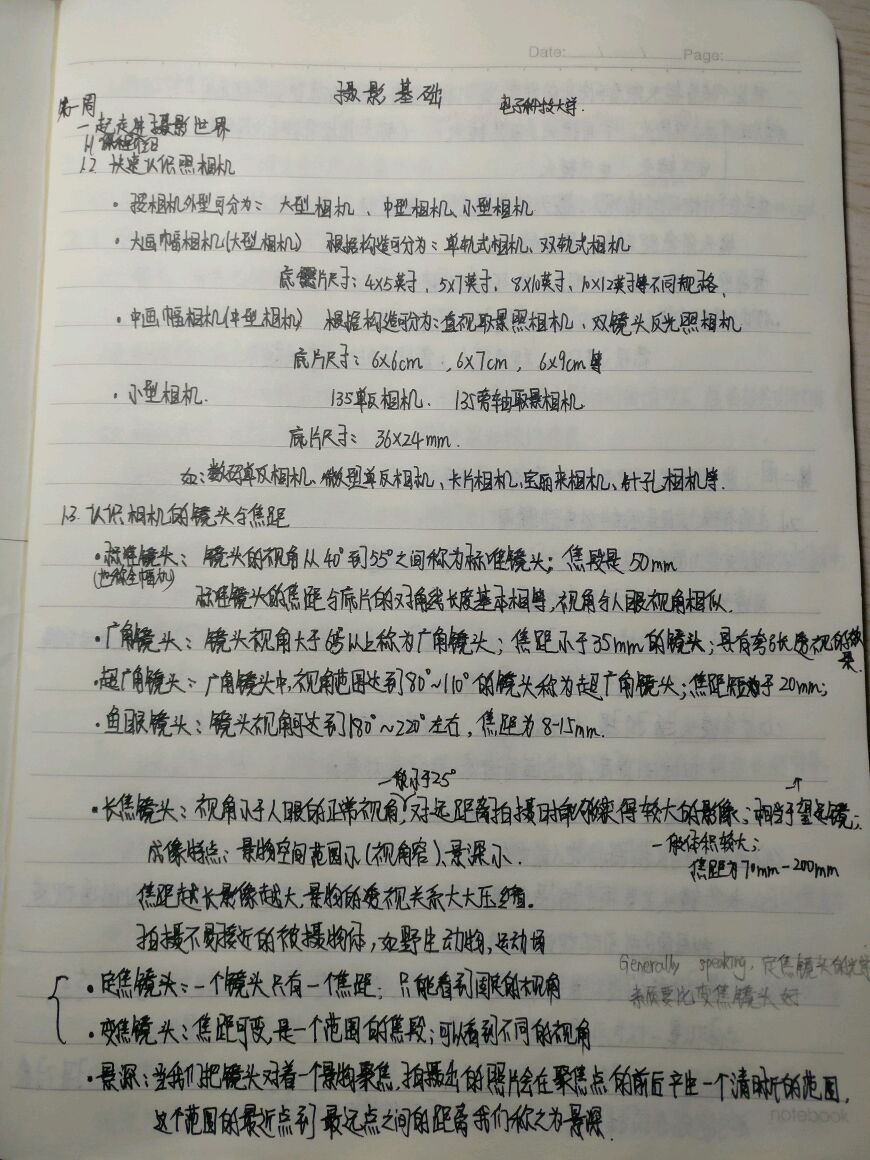 Date: / / Page:
摄影基础 电子科技大学.
第一周
一起走进摄影世界
1.1 课程介绍
1.2 快速认识照相机
· 按相机外型可分为：大型相机、中型相机、小型相机
· 大画幅相机(大型相机) 根据构造可分为：单轨式相机、双轨式相机
底片尺寸：4×5英寸、5×7英寸、8×10英寸、10×12英寸等不同规格、
· 中画幅相机(中型相机) 根据构造可分为：直视取景照相机、双镜头反光照相机
底片尺寸：6×6cm ,6×7cm, 6×9cm等
· 小型相机. 135单反相机. 135旁轴取景相机
底片尺寸：36×24mm.
如：数码单反相机、微型单反相机、卡片相机、宝丽来相机、针孔相机等.
1.3 认识相机的镜头与焦距
· 标准镜头：镜头的视角从40°到55°之间称为标准镜头；焦段是50mm
(也称全幅机)
标准镜头的焦距与底片的对角线长度基本相等，视角与人眼视角相似.
· 广角镜头：镜头视角大于65以上称为广角镜头；焦距小于35mm的镜头；具有夸张透视的效果.
· 超广角镜头：广角镜头中，视角范围达到80°~110°的镜头称为超广角镜头；焦距短于20mm；
· 鱼眼镜头：镜头视角可达到180°~220°左右，焦距为8-15mm.
一般小于25°
· 长焦镜头：视角小于人眼的正常视角，对远距离拍摄时能够获得较大的影像；相当于望远镜；
一般体积较大；
成像特点：景物空间范围小(视角窄)、景深小.
焦距为70mm-200mm
焦距越长影像越大，景物的透视关系大大压缩。
拍摄不易接近的被摄物体，如野生动物，运动场
Generally speaking, 定焦镜头的光学
素质要比变焦镜头好
· 定焦镜头：一个镜头只有一个焦距；只能看到固定的视角
· 变焦镜头：焦距可变，是一个范围的焦段；可以看到不同的视角
· 景深：当我们把镜头对着一个景物聚焦，拍摄出的照片会在聚焦点的前后产生一个清晰的范围，
这个范围的最近点到最远点之间的距离我们称之为景深.
notebook